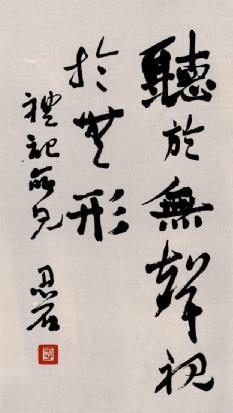 聽於無聲視
於無形
禮記所見